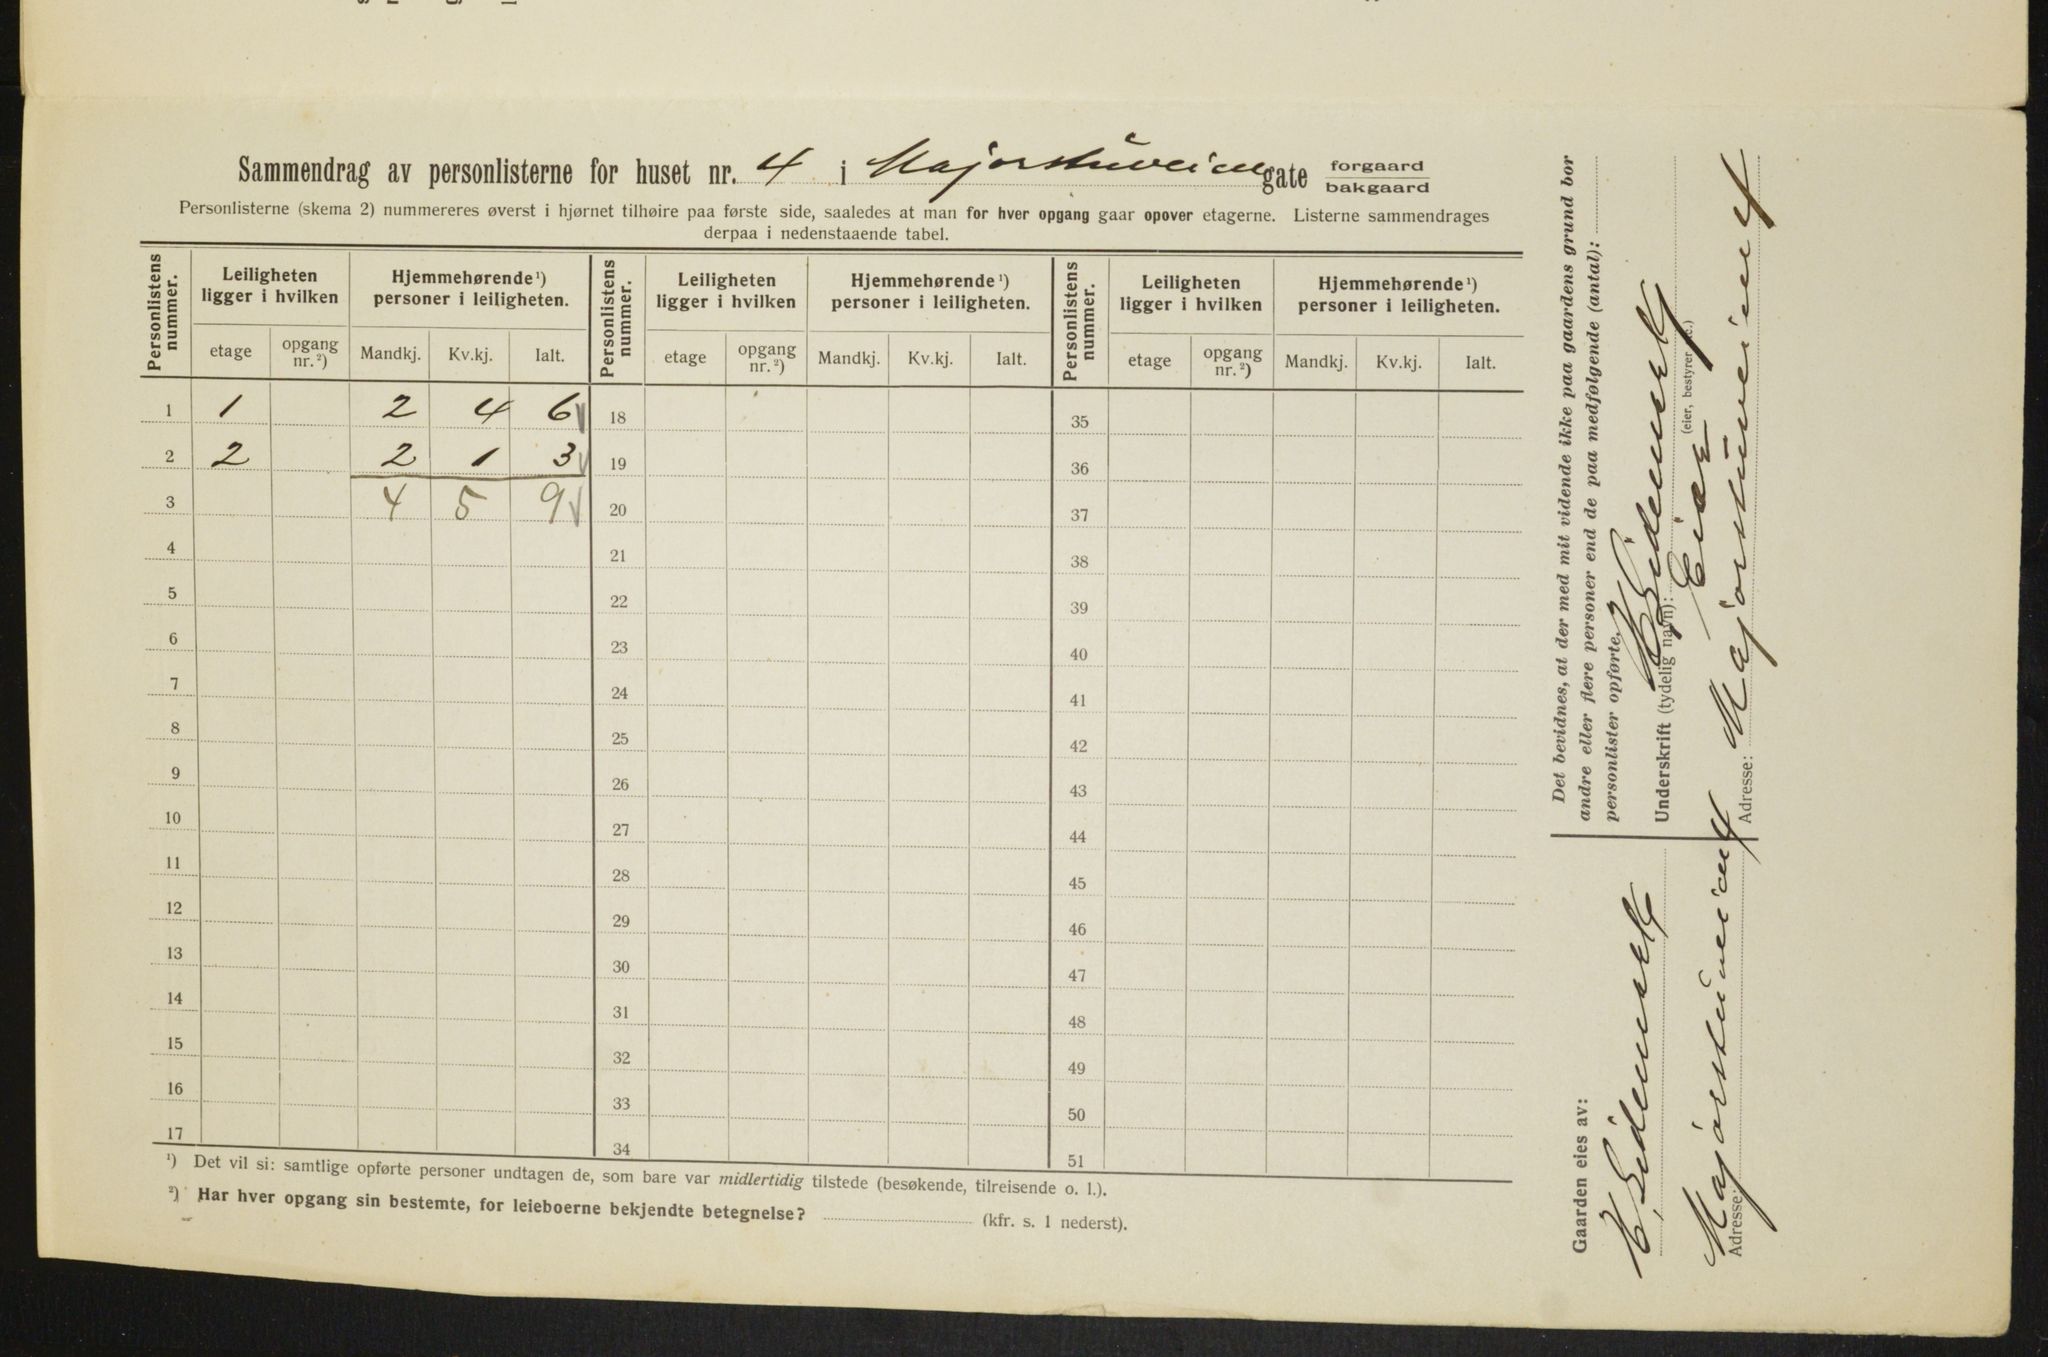 Sammendrag av personlisterne for huset nr. 4 i Majorstuveien gate forgaard
bakgaard
Personlisterne (skema 2) nummereres øverst i hjørnet tilhøire paa første side, saaledes at man for hver opgang gaar opover etagerne. Listerne sammendrages
derpaa i nedenstaaende tabel.
Personlistens nummer. Leiligheten ligger i hvilken Hjemmehørende ¹) personer i leiligheten. Personlistens nummer. Leiligheten ligger i hvilken Hjemmehørende ¹) personer i leiligheten. Personlistens nummer. Leiligheten ligger i hvilken Hjemmehørende ¹) personer i leiligheten.
etage opgang nr. ²) Mandkj. Kv.kj. Ialt. etage opgang nr. ²) Mandkj. Kv.kj. Ialt. etage opgang nr. ²) Mandkj. Kv.kj. Ialt.
1 1 2 4 6 18 35
2 2 2 1 3 19 36
3 4 5 9 20 37
4 21 38
5 22 39
6 23 40
7 24 41
8 25 42
9 26 43
10 27 44
11 28 45
12 29 46
13 30 47
14 31 48
15 32 49
16 33 50
17 34 51
¹) Det vil si: samtlige opførte personer undtagen de, som bare var midlertidig tilstede (besøkende, tilreisende o. l.).
²) Har hver opgang sin bestemte, for leieboerne bekjendte betegnelse? (kfr. s. 1 nederst).
Det bevidnes, at der med mit vidende ikke paa gaardens grund bor
andre eller flere personer end de paa medfølgende (antal):
personlister opførte.
Underskrift (tydelig navn):
Eier
(eier, bestyrer etc.)
Adresse: Majorstuveien 4
Gaarden eies av:
Adresse: Majorstuveien 4